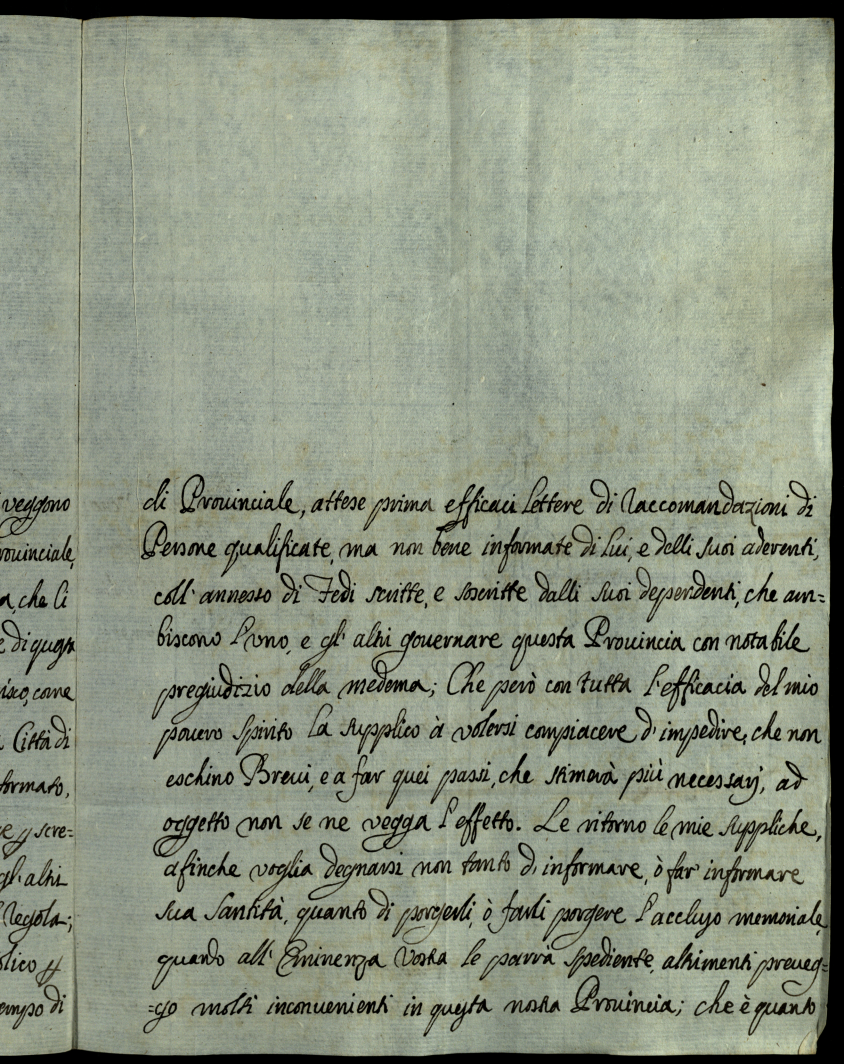 veggono
rouinciale,
a, che li
e di quest
isco, come
Città di
formato,
e p scre=
gl'altri
Regola;
olico p
empo di
di Prouinciale, attese prima efficaci lettere di raccomandazioni di
Persone qualificate, ma non bene informate di Lui, e delli suoi aderenti,
coll'annesso di Fedi scritte, e soscritte dalli suoi dependenti, che am=
biscono l'uno, e gl'altri gouernare questa Prouincia con notabile
pregiudizio della medema; Che però con tutta l'efficacia del mio
pouero spirito la supplico à volersi compiacere d'impedire, che non
eschino Breui, e a far quei passi, che stimerà più necessarj, ad
oggetto non se ne vegga l'effetto. Le ritorno le mie suppliche,
afinche voglia degnarsi non tanto d'informare, ò far informare
sua Santità, quanto di porgerli, ò farli porgere l'accluso memoriale,
quando all'Eminenza Vostra le parrà spediente, altrimenti preueg=
=go molti inconuenienti in questa nostra Prouincia; che è quanto